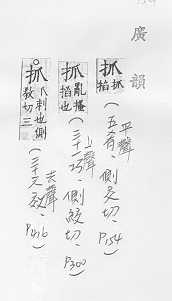 廣韻
抓 抓掐(平聲五肴、側交切、P154)
抓 亂搔掐也(上聲三十一巧、側絞切、P300)
抓 爪刺也側教切三(去聲三十六效、P416)